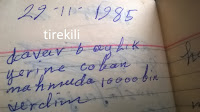 29-11-1985
tirekili
davar 6 aylık
yerine çoban
mahmuda 10000 bin
verdim